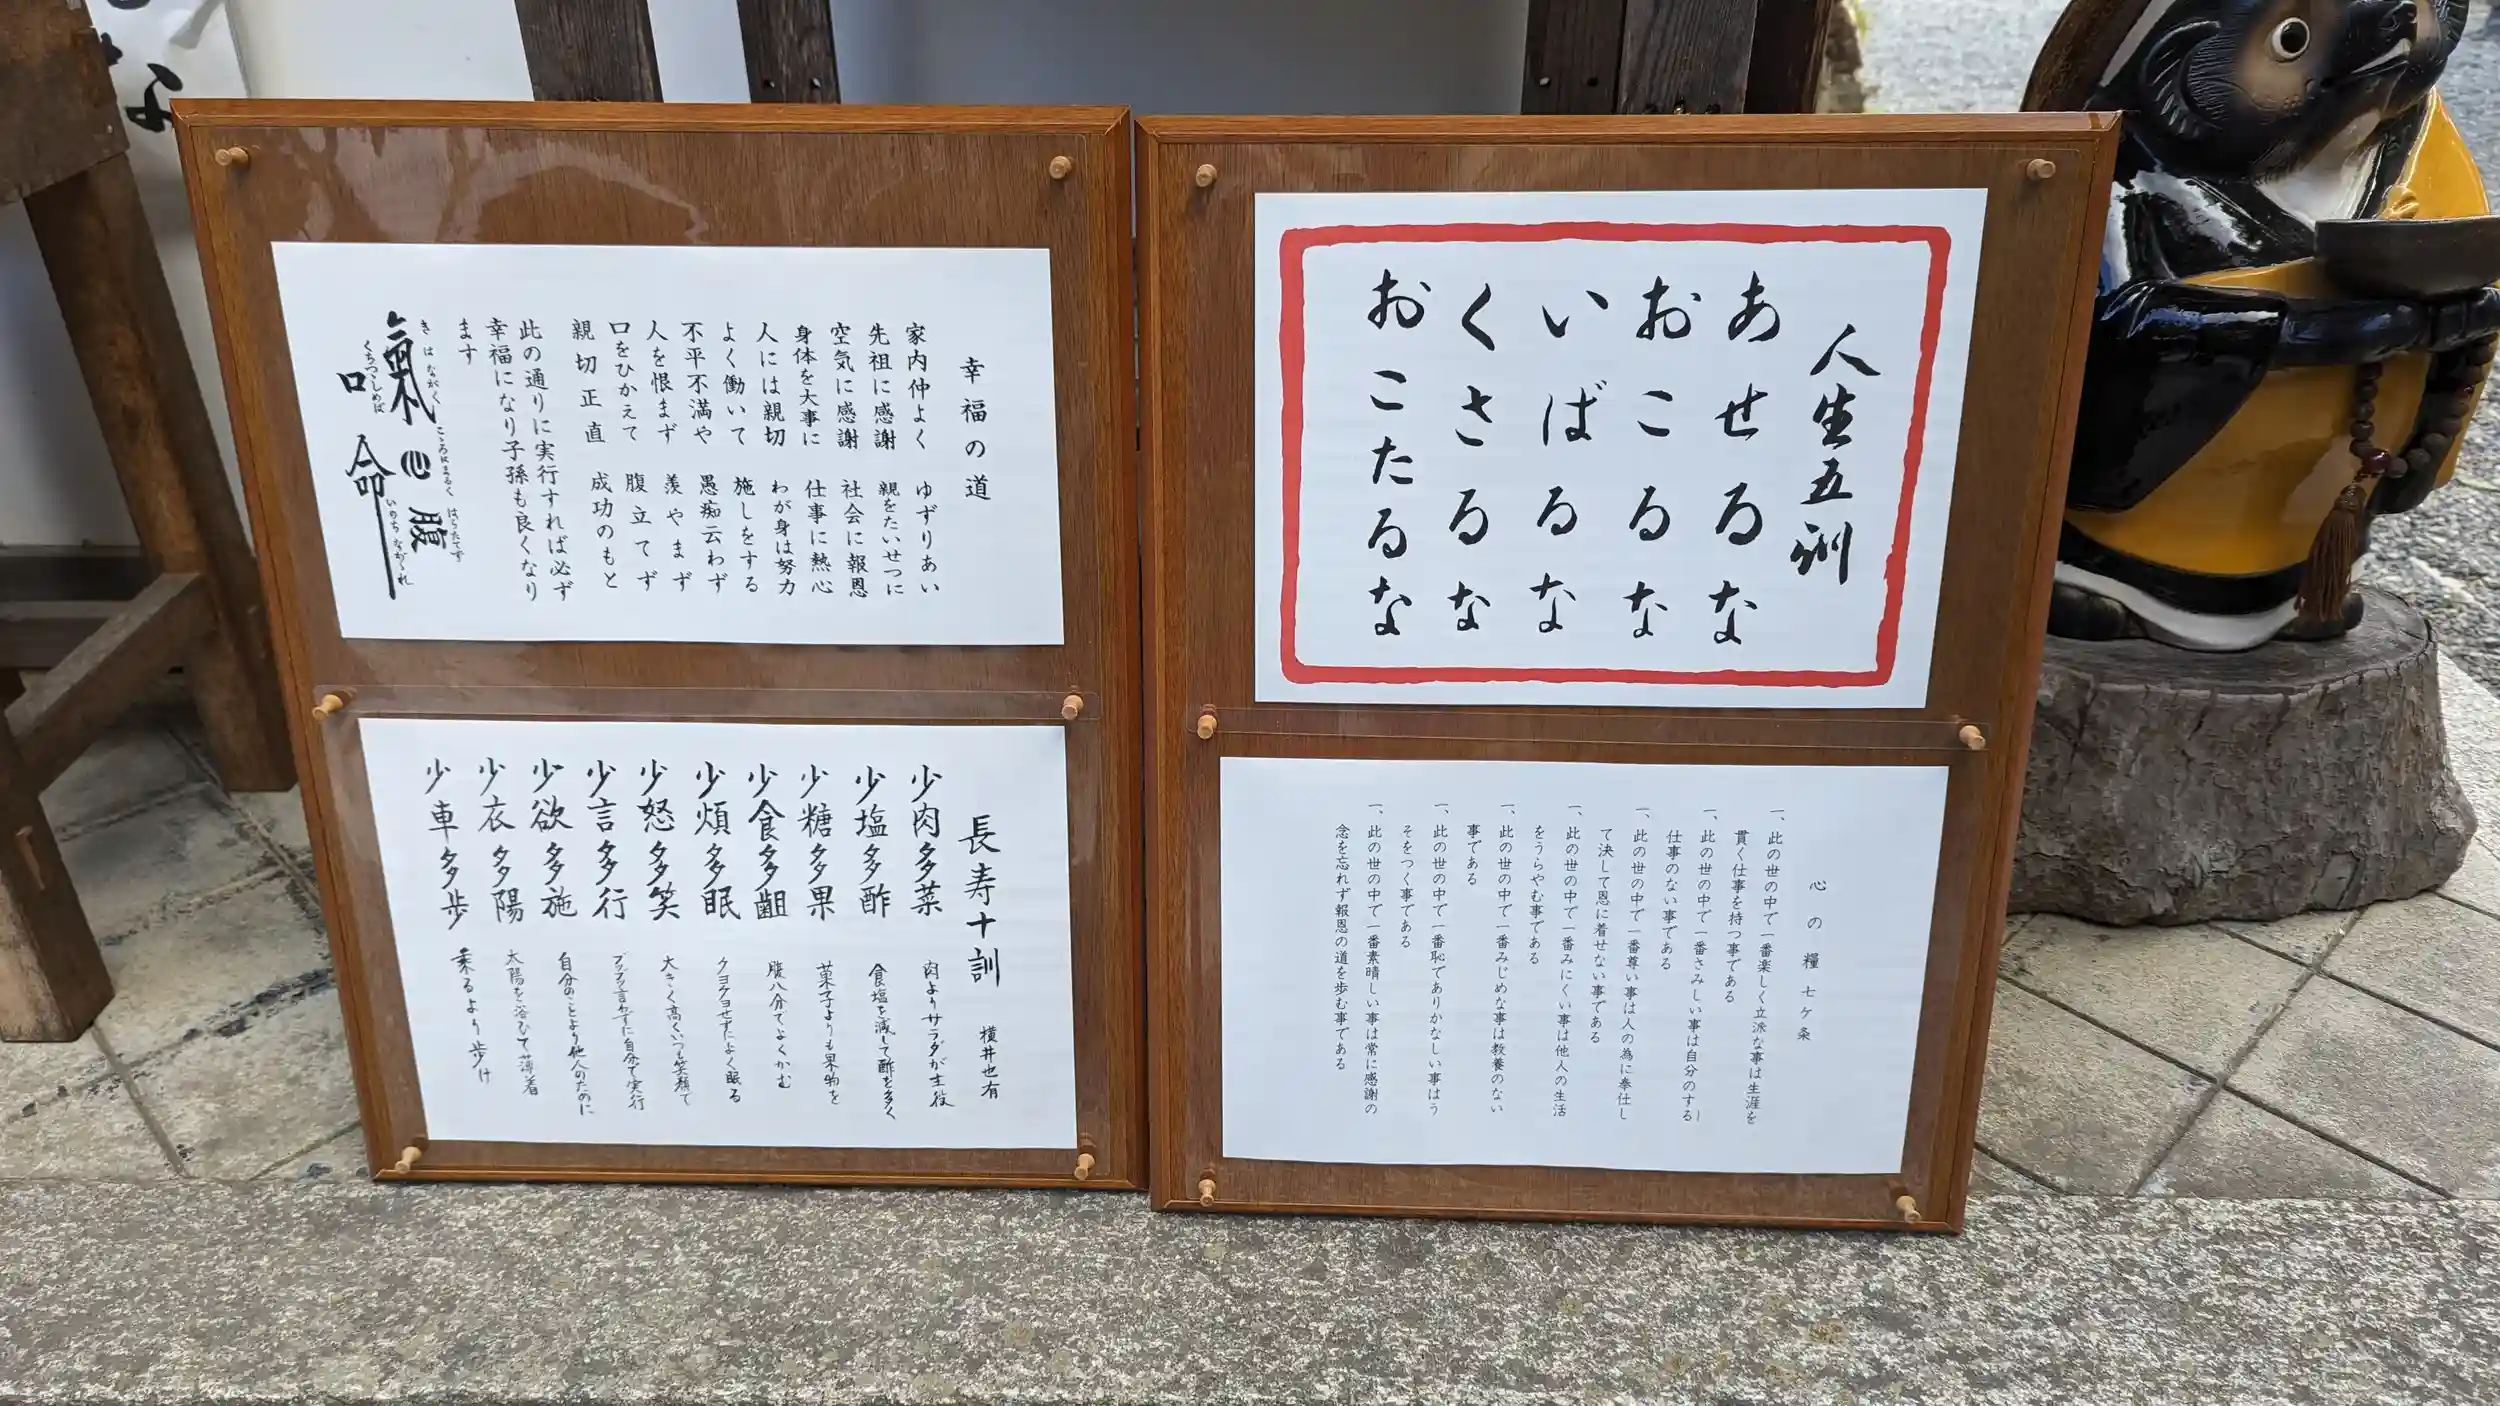 人生五訓
あせるな
おこるな
いばるな
くさるな
おこたるな
心の糧七ケ条
一、此の世の中で一番楽しく立派な事は生涯を
貫く仕事を持つ事である
一、此の世の中で一番さみしい事は自分のする
仕事のない事である
一、此の世の中で一番尊い事は人の為に奉仕し
て決して恩に着せない事である
一、此の世の中で一番みにくい事は他人の生活
をうらやむ事である
一、此の世の中で一番みじめな事は教養のない
事である
一、此の世の中で一番恥でありかなしい事はう
そをつく事である
一、此の世の中で一番素晴しい事は常に感謝の
念を忘れず報恩の道を歩む事である
幸福の道
家内仲よく ゆずりあい
先祖に感謝 親をたいせつに
空気に感謝 社会に報恩
身体を大事に 仕事に熱心
人には親切 わが身は努力
よく働いて 施しをする
不平不満や 愚痴云わず
人を恨まず 羨やまず
口をひかえて 腹立てず
親切正直 成功のもと
此の通りに実行すれば必ず
幸福になり子孫も良くなり
ます
氣心腹
きはながく こころはまるく はらたてず
口命
くちつつしめば いのちながかれ
長寿十訓 横井也有
少肉多菜 肉よりサラダが主役
少塩多酢 食塩を減して酢を多く
少糖多果 菓子よりも果物を
少食多齟 腹八分でよくかむ
少煩多眠 クヨクヨせずによく眠る
少怒多笑 大きく高くいつも笑顔で
少言多行 ブツブツ言わずに自分で実行
少欲多施 自分のことより他人のために
少衣多陽 太陽を浴びて薄着
少車多歩 乗るより歩け
な